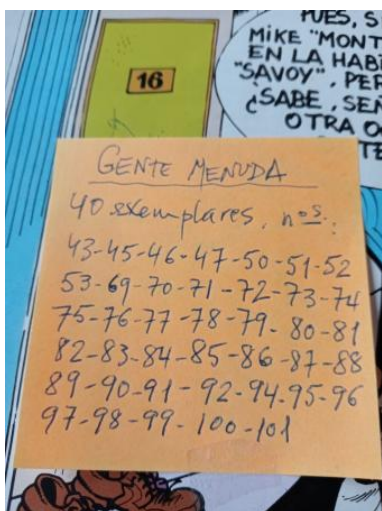 PUES, S
MIKE "MONT
EN LA HABI
"SAVOY", PER
¿SABE, SEÑ
OTRA O
16
GENTE MENUDA
40 exemplares, nºs.:
43-45-46-47-50-51-52
53-69-70-71-72-73-74
75-76-77-78-79-80-81
82-83-84-85-86-87-88
89-90-91-92-94-95-96
97-98-99-100-101